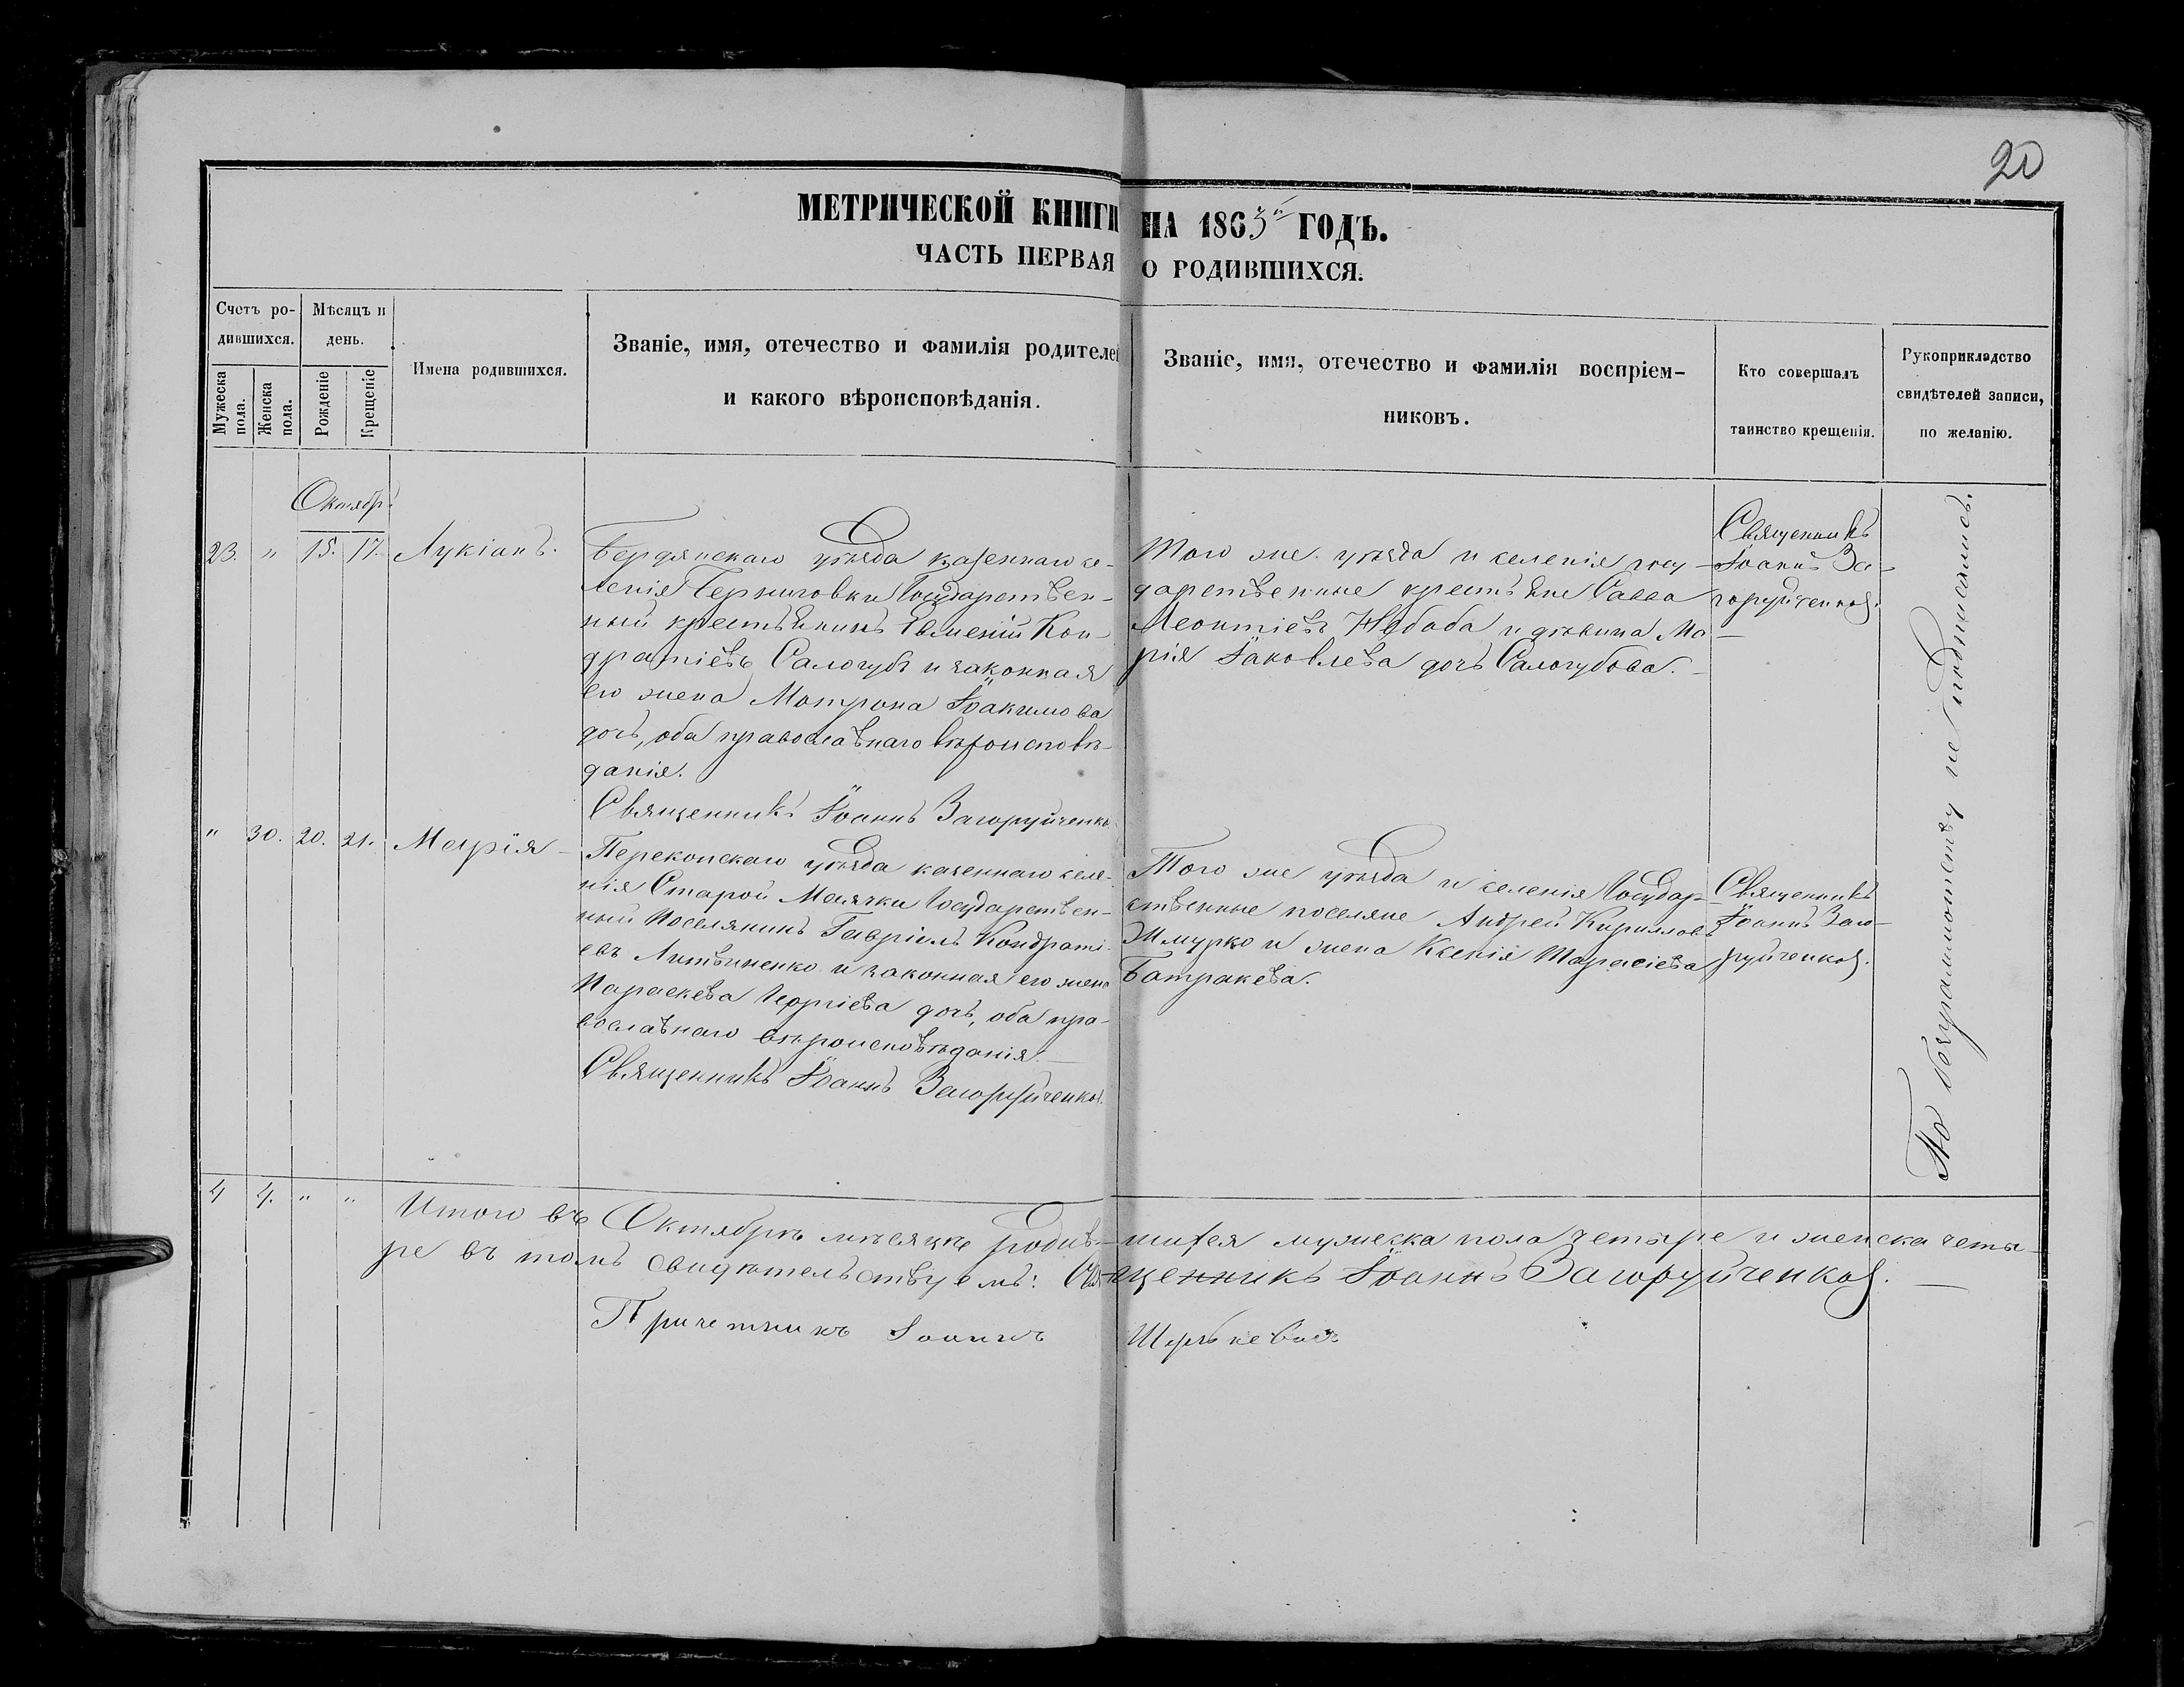 20
МЕТРИЧЕСКОЙ КНИГИ НА 1863й ГОДЪ.
ЧАСТЬ ПЕРВАЯ О РОДИВШИХСЯ.
Счетъ ро-
дившихся.
Мужеска пола.
Женска пола.
Мѣсяцъ и
день.
Рожденіе
Крещеніе
Имена родившихся.
Званіе, имя, отечество и фамилія родителей
и какого вѣроисповѣданія.
Званіе, имя, отечество и фамилія воспріем-
никовъ.
Кто совершалъ
таинство крещенія.
Рукоприкладство
свидѣтелей записи,
по желанію.
Октябрь
23. " 15. 17. Лукіанъ.
Бердянскаго уѣзда казеннаго се-
ленія Черниговки Государствен-
ный крестьянинъ Евменій Кон-
дратіевъ Салогубъ и законная
его жена Матрона Іоакимова
дочь, оба православнаго вѣроисповѣ-
данія.
Священникъ Іоаннъ Загоруйченко
Того же уѣзда и селенія госу-
дарственные крестьяне Савва
Леонтіевъ Небаба и дѣвица Ма-
рія Іаковлева дочь Салогубова.
Священникъ
Іоаннъ За-
горуйченко.
" 30. 20. 21. Марія
Перекопскаго уѣзда казеннаго селе-
нія Старой Маячки Государствен-
ный Поселянинъ Гавріилъ Кондраті-
евъ Литвиненко и законная его жена
Параскева Георгіева дочь, оба пра-
вославнаго вѣроисповѣданія.
Священникъ Іоаннъ Загоруйченко.
Того же уѣзда и селенія Государ-
ственные поселяне Андрей Кирилловъ
Жмурко и жена Ксенія Тарасіева
Батракева.
Священникъ
Іоаннъ Заго-
руйченко.
По безграмотству не подписались.
4 4. " " Итого въ Октябрѣ мѣсяцѣ родив-шихся мужеска пола четыре и женска четы-
ре въ томъ свидѣтельствуемъ: Священникъ Іоаннъ Загоруйченко.
Причетникъ Іоаннъ